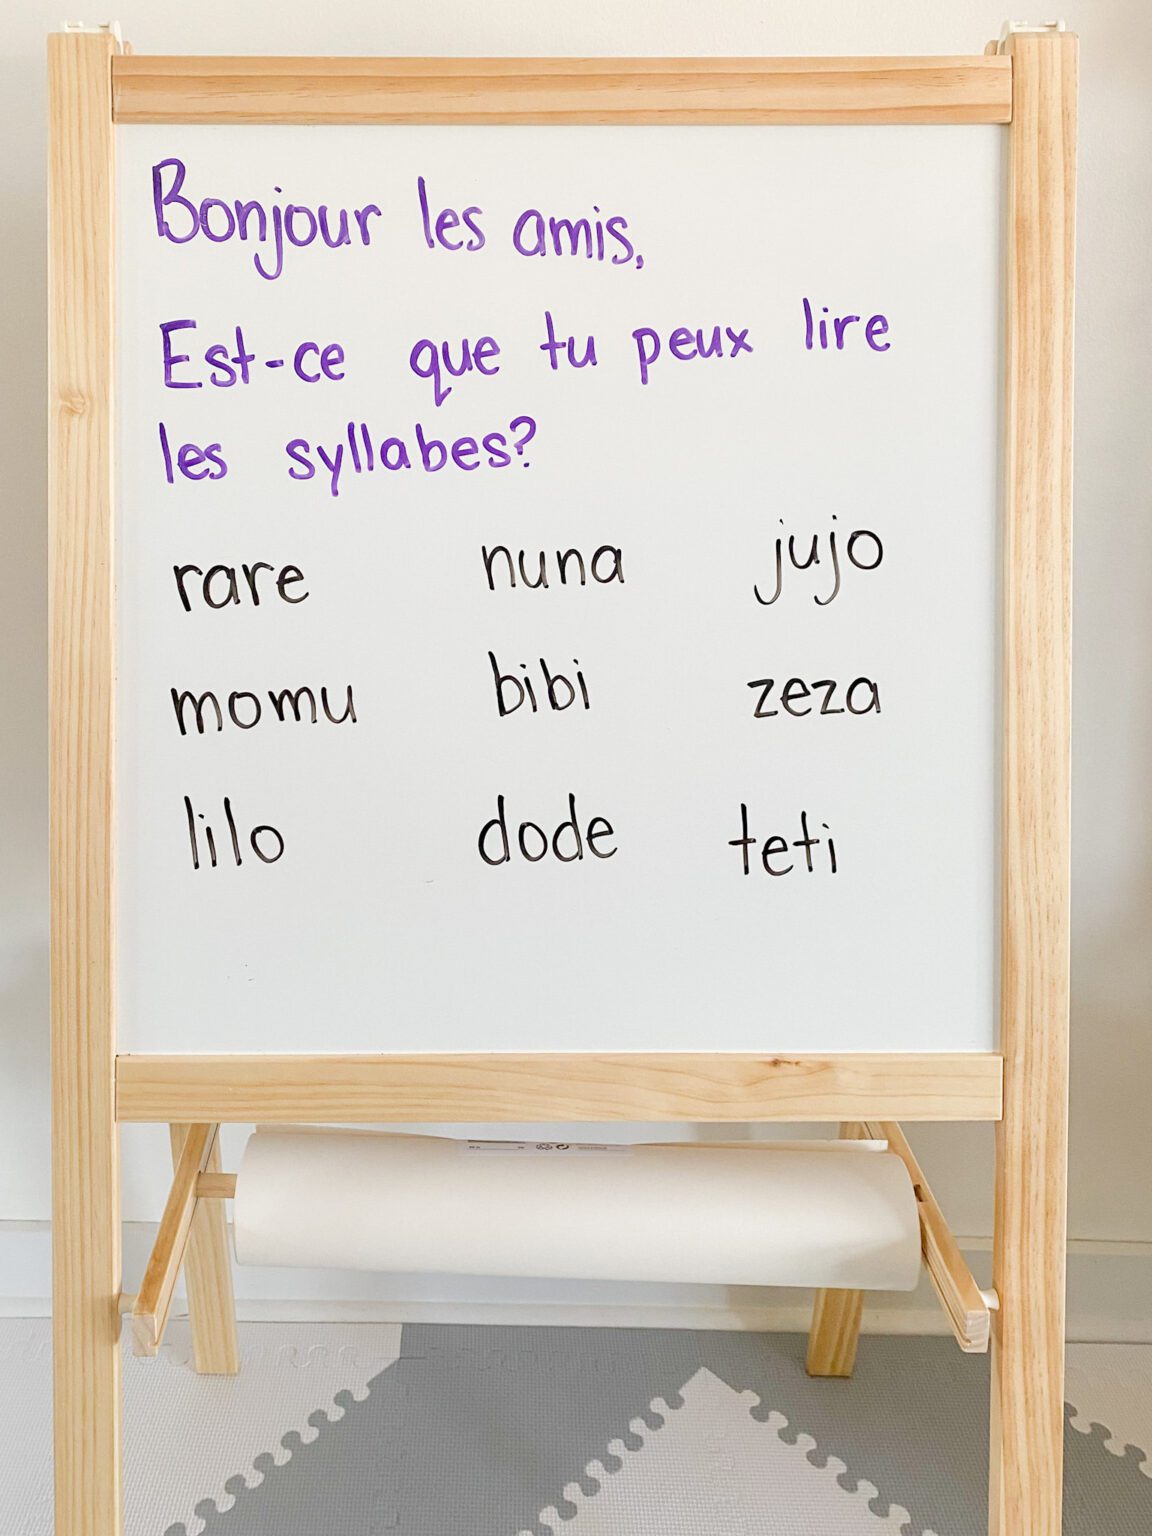 Bonjour les amis,
Est-ce que tu peux lire
les syllabes?
rare nuna jujo
momu bibi zeza
lilo dode teti